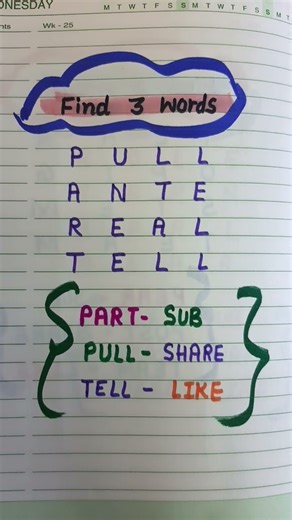 DNESDAY
M T W T F S S M T W T F S S M T W
nts Wk - 25
Find 3 Words
P U L L
A N T E
R E A L
T E L L
PART- SUB
PULL- SHARE
TELL - LIKE